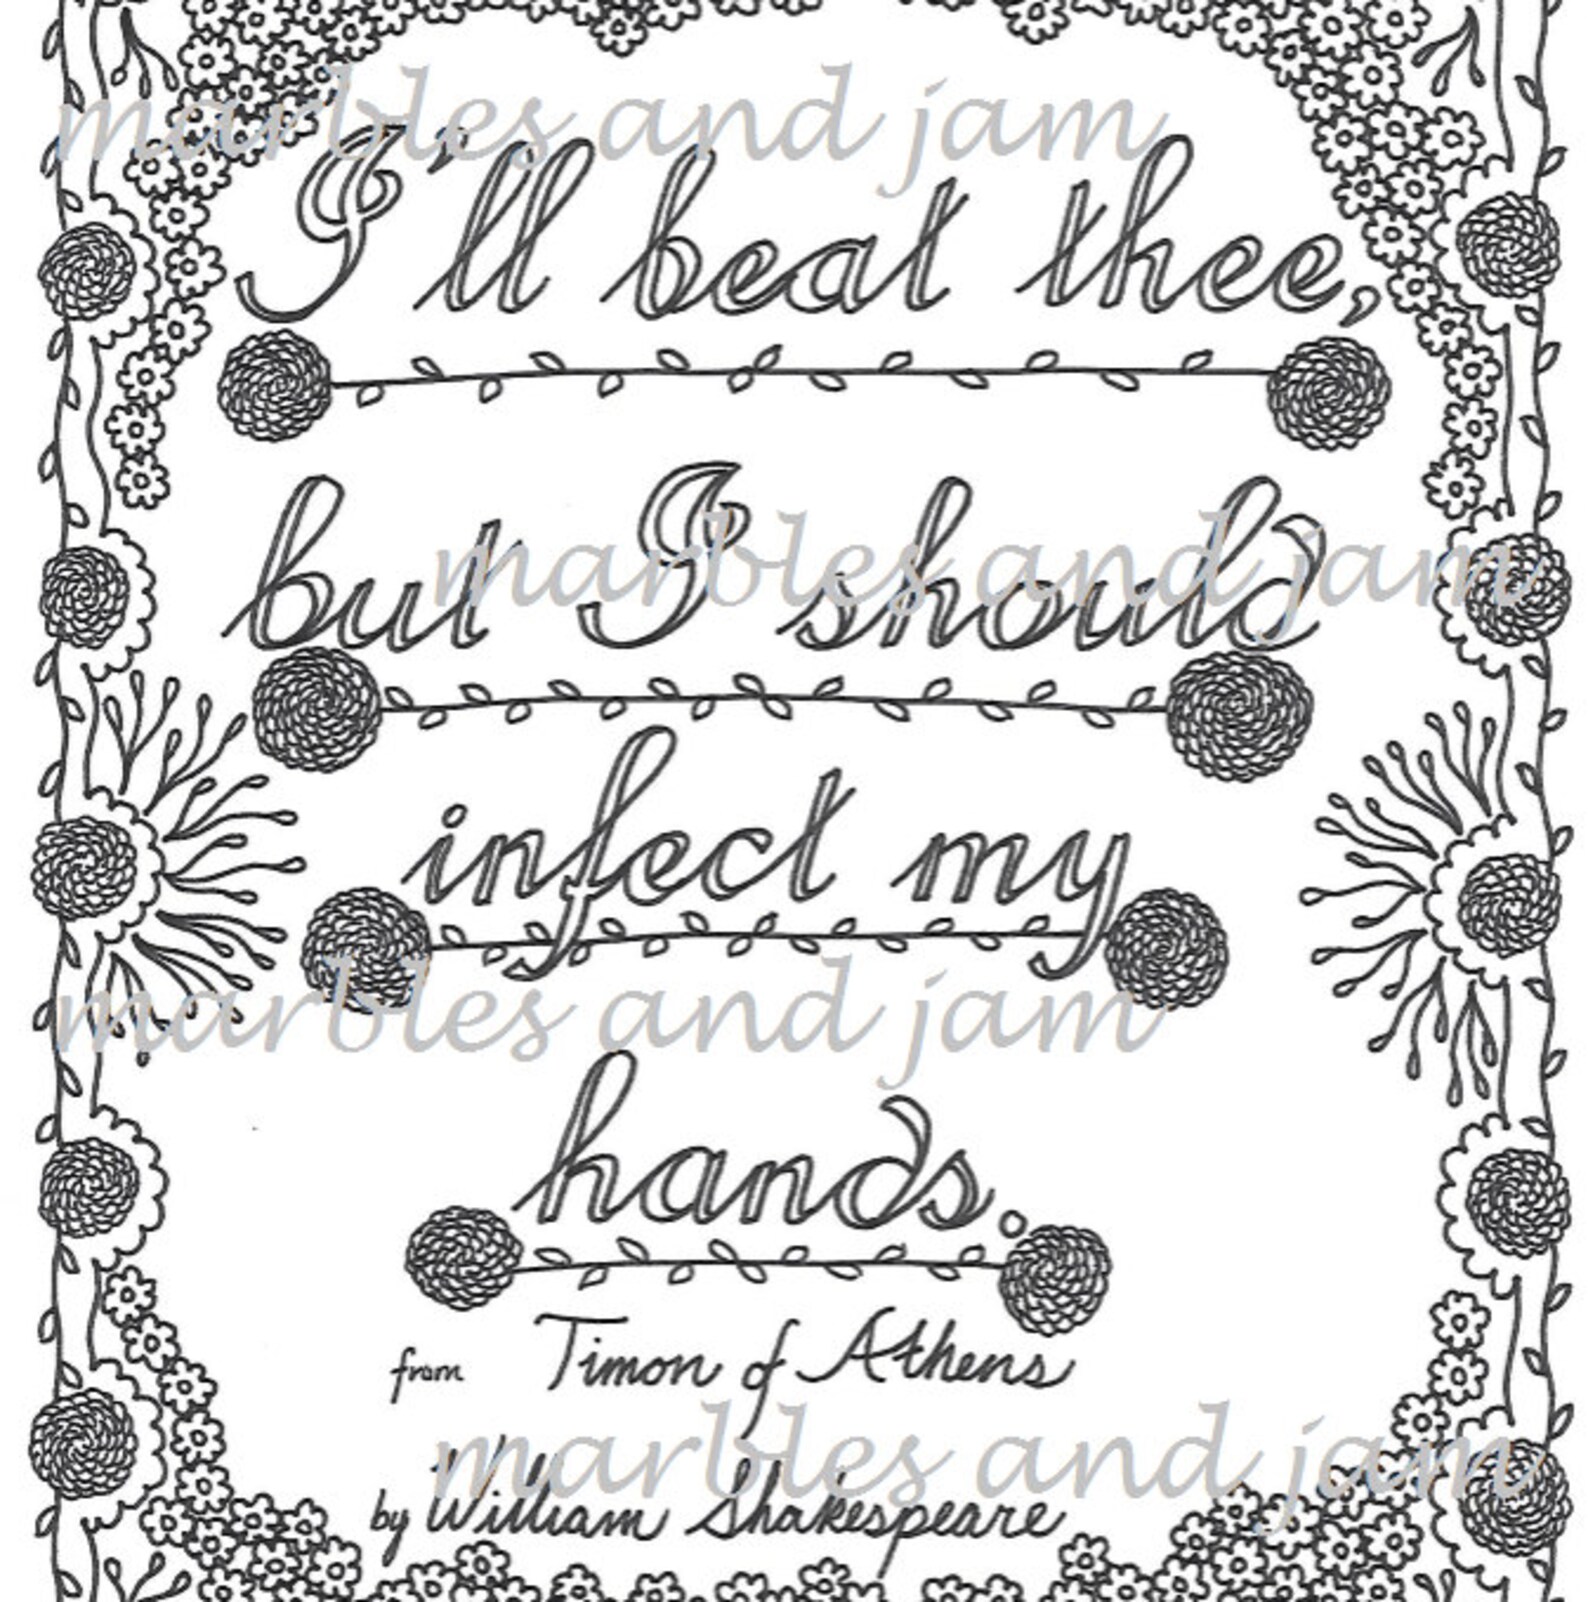 marbles and jam
I'll beat thee,
but I should
marbles and jam
infect my
marbles and jam
hands.
from Timon of Athens
marbles and jam
by William Shakespeare